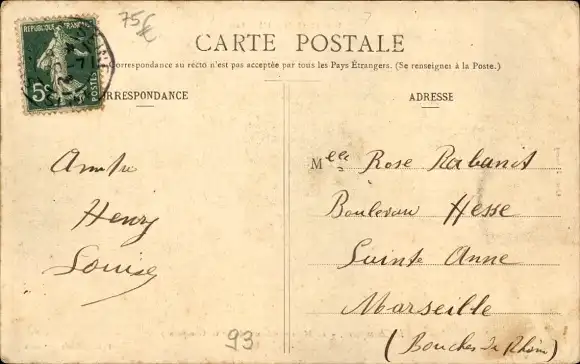 75€
RÉPUBLIQUE FRANÇAISE
5c
POSTES
CARTE POSTALE
Correspondance au recto n'est pas acceptée par tous les Pays Étrangers. (Se renseigner à la Poste.)
CORRESPONDANCE
ADRESSE
Henry
Louise
Mlle Rose Rabanit
Boulevard Hesse
Sainte Anne
Marseille
(Bouches du Rhône)
93